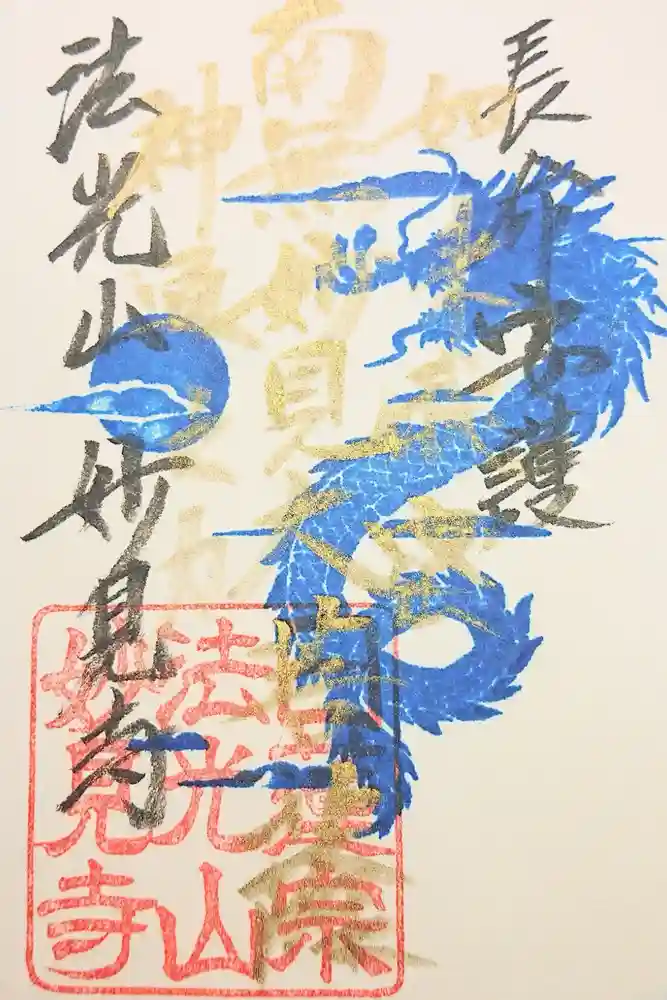 守護
如来
南無妙見大菩薩
神通之力
法光山 妙見寺
日蓮宗
法光山
妙見寺